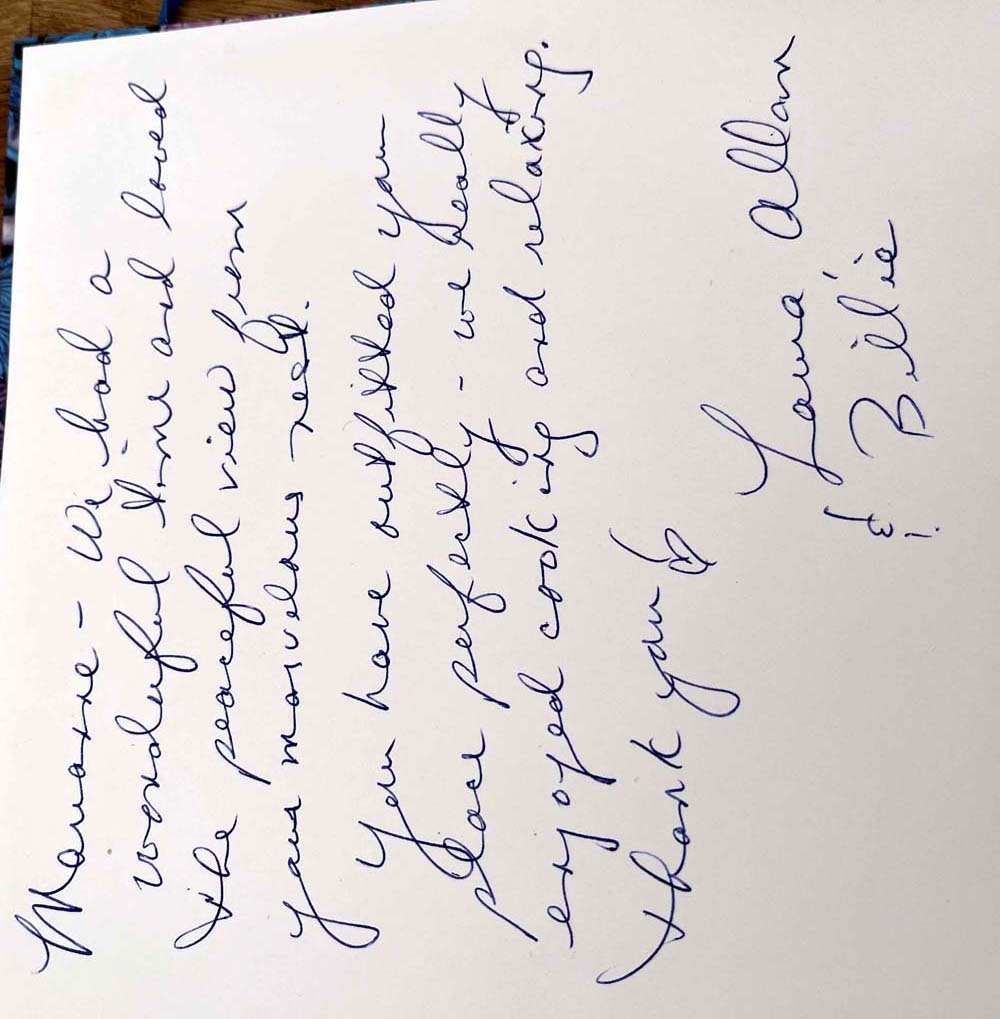 We had a
wonderful time and loved
the peaceful view from
your marvelous nest.
You have outfitted your
place perfectly - we really
enjoyed cooking and relaxing.
Thank you
Allan
& Billie